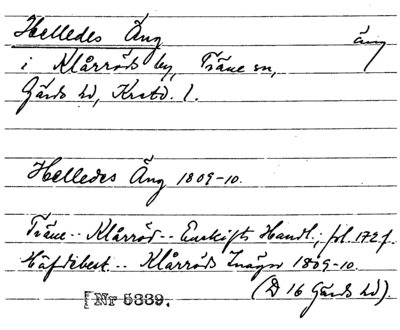 Helledes Äng äng
i Klårröds by, Träne sn,
Gärds hd, Krstd. l.
Helledes Äng 1809-10.
Träne.. Klårröd.. Enskifts Handl., fol. 172 f.
Häfdebeskr.. Klårröds Inägor 1809-10.
(D 16 Gärds hd).
[Nr 5339.